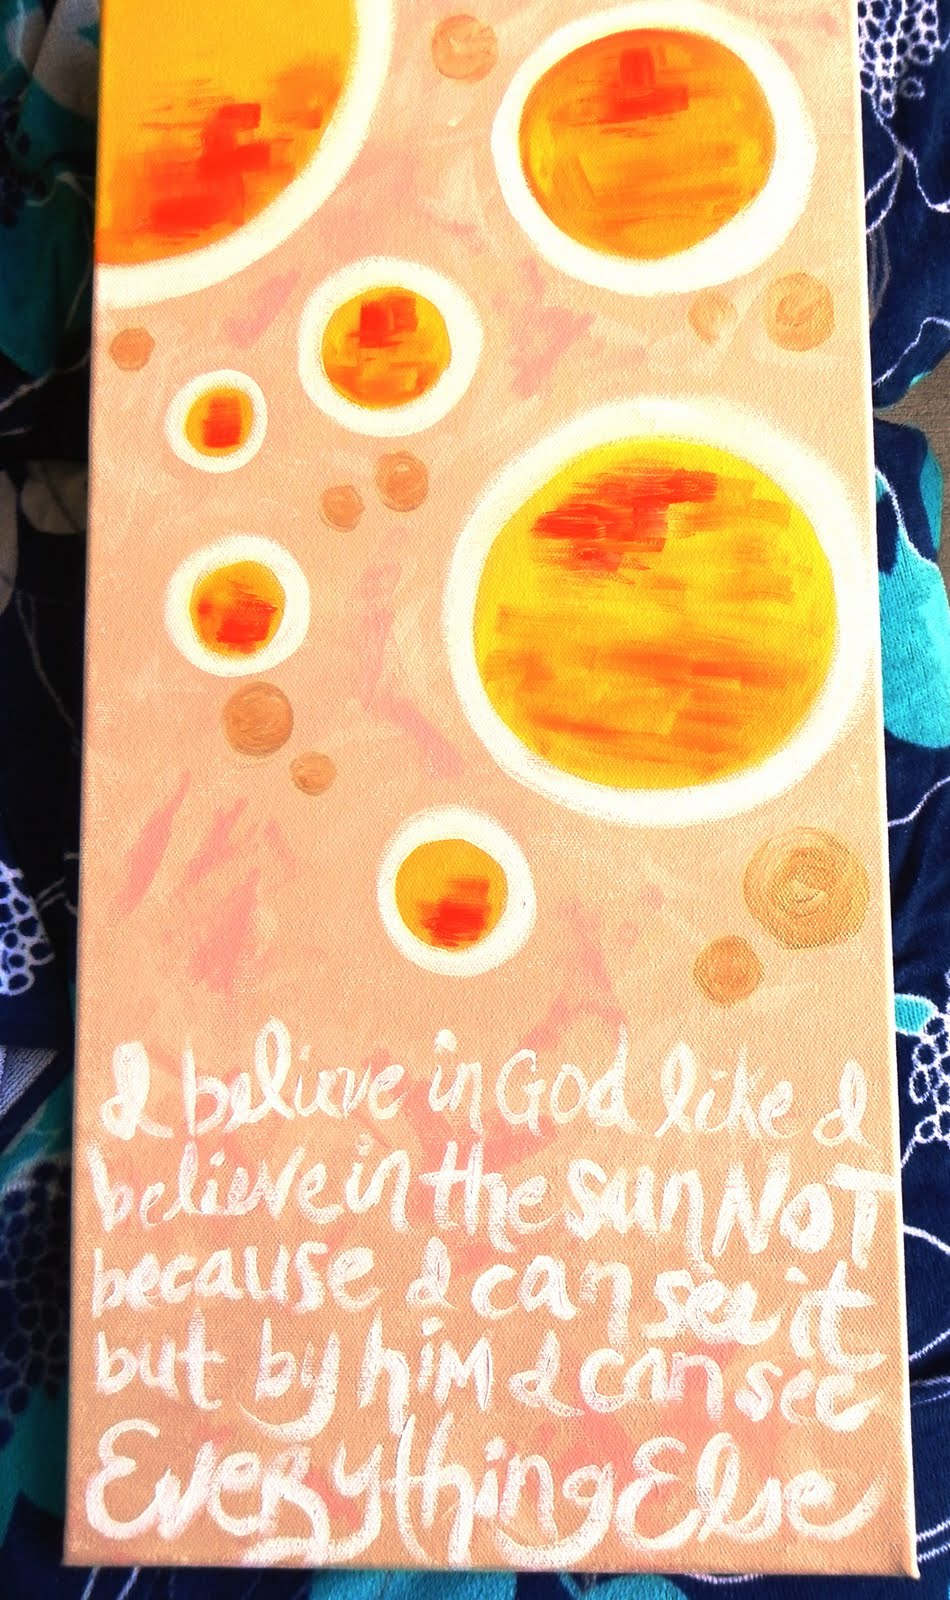 I believe in God like I
believe in the sun NOT
because I can see it
but by him I can see
Everything Else